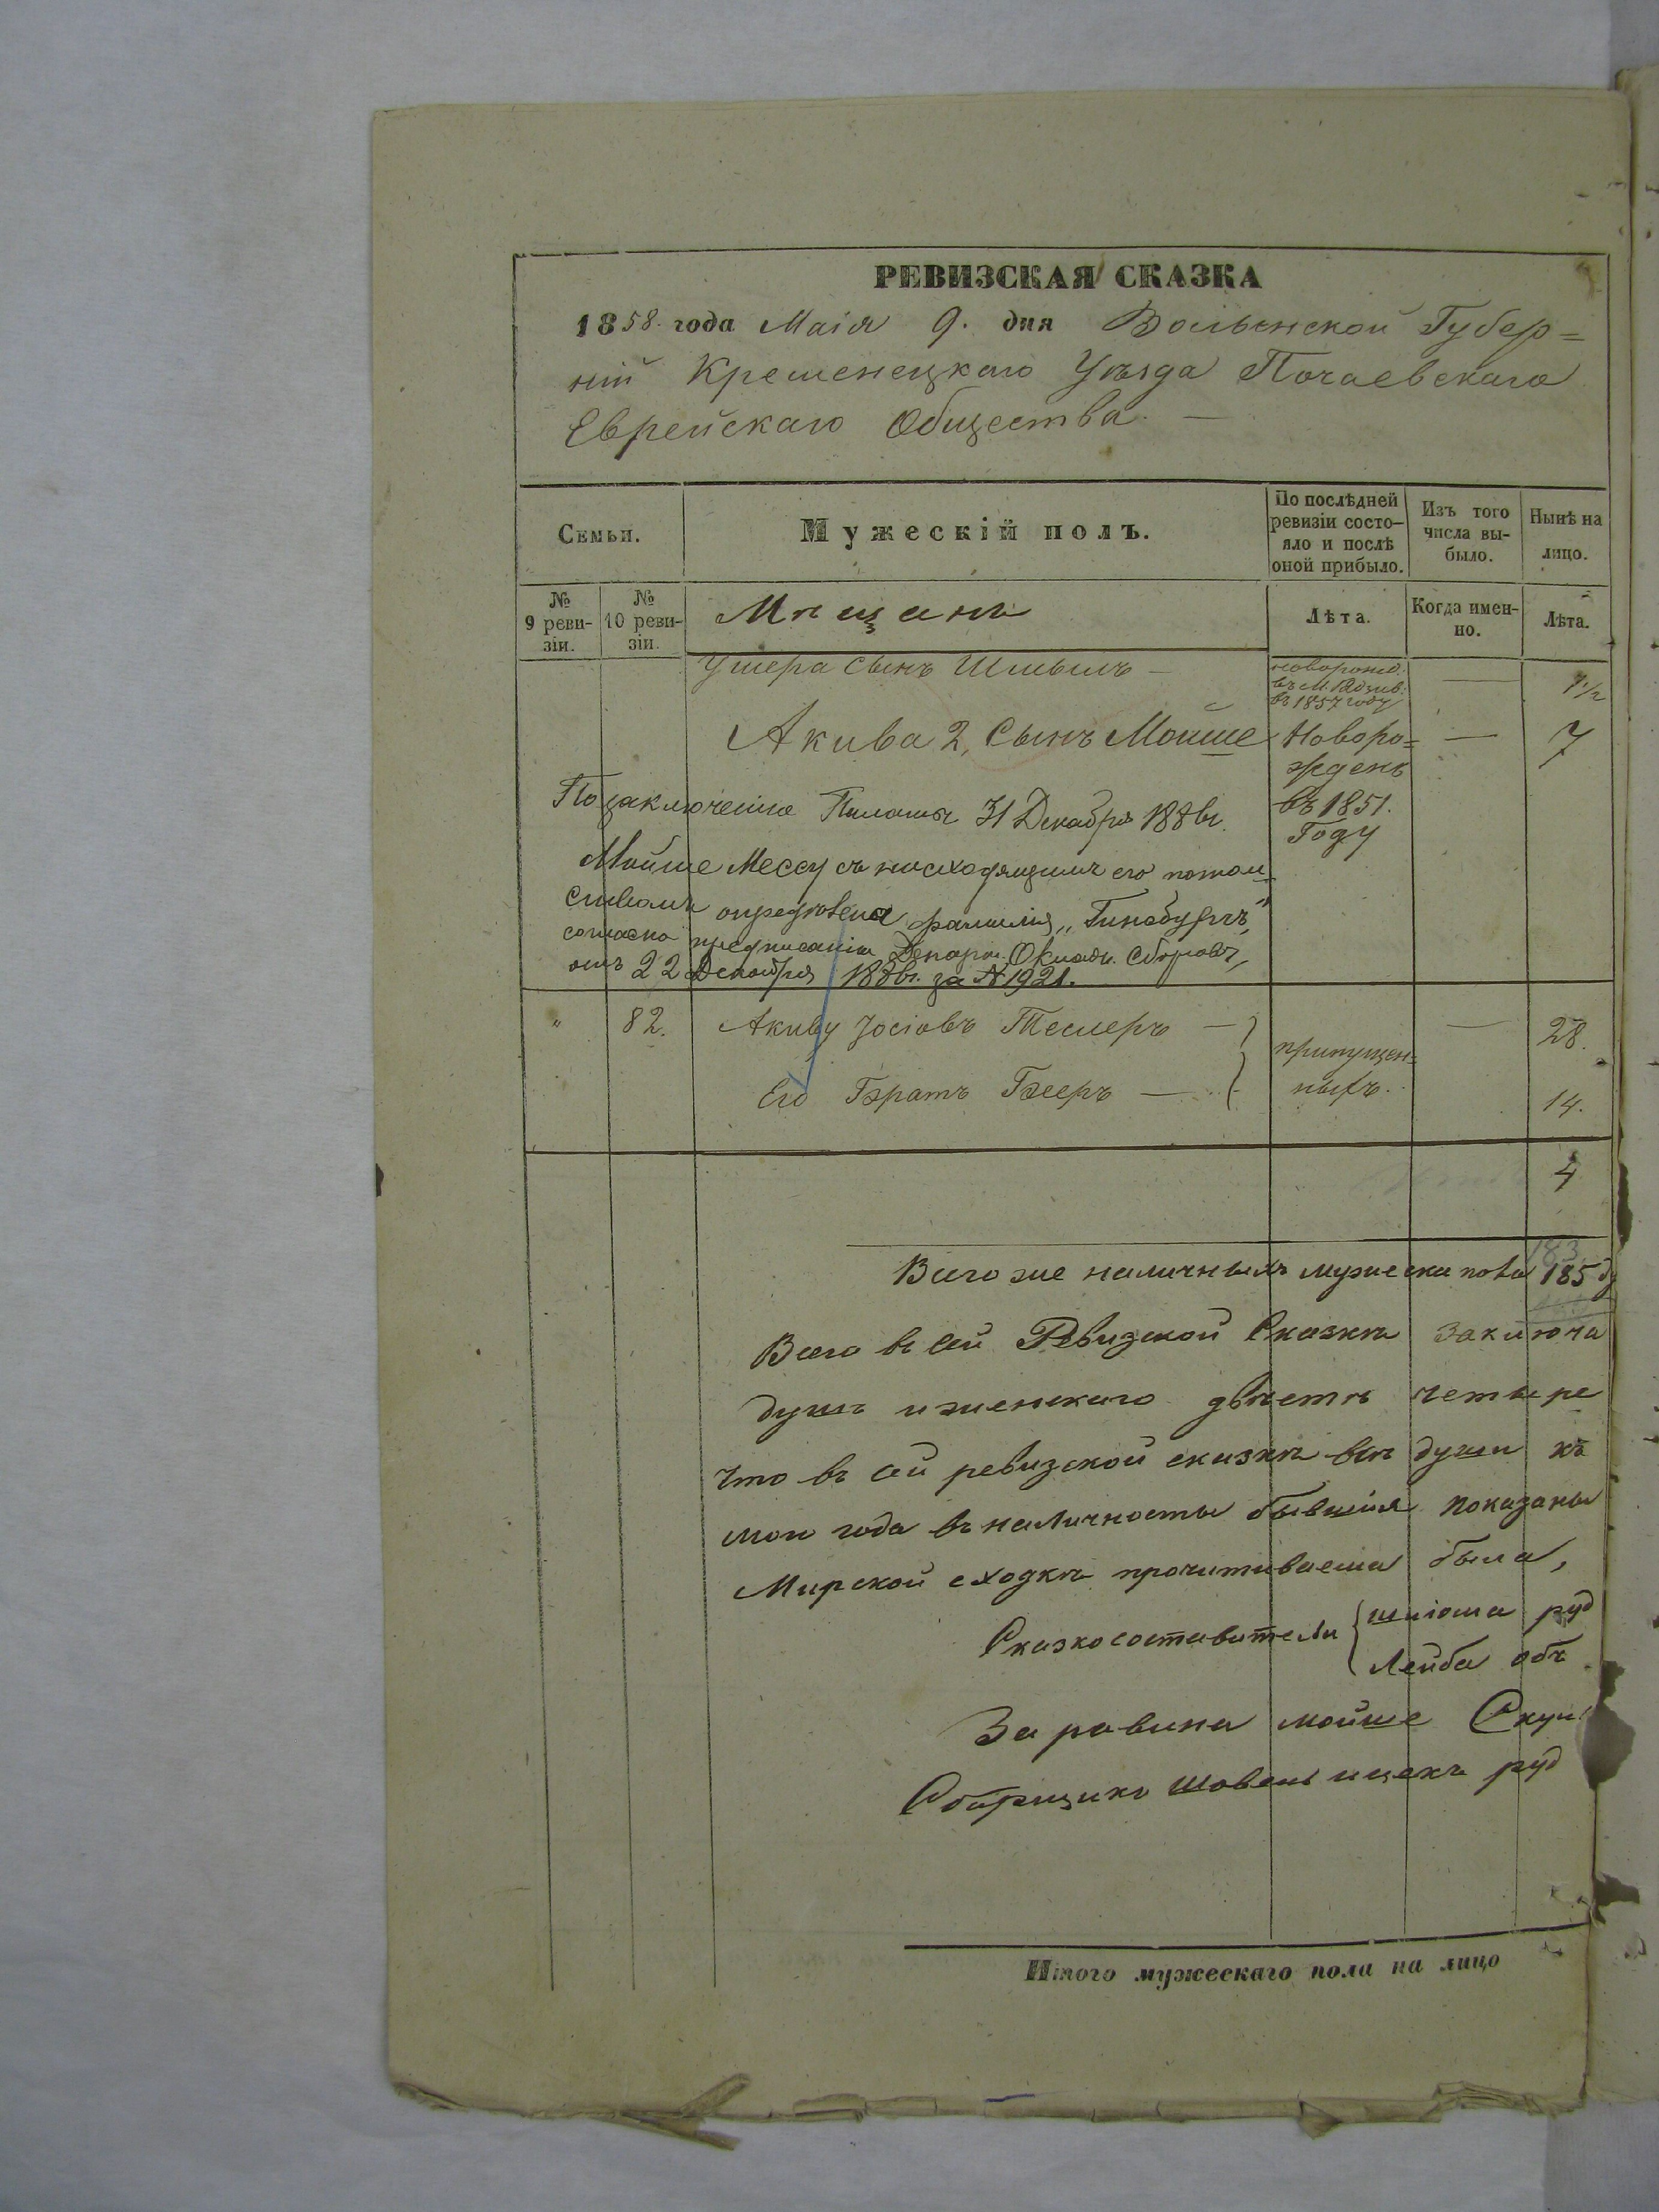 РЕВИЗСКАЯ СКАЗКА
1858. года Маія 9. дня Волынской Губер=
ніи Кременецкаго Уѣзда Почаевскаго
Еврейскаго Общества. —
Семьи.
Мужескій полъ.
По послѣдней ревизіи состо-яло и послѣ оной прибыло.
Изъ того числа вы-было.
Нынѣ на лицо.
№ 9 реви-зіи.
№ 10 реви-зіи.
Мѣщанъ
Лѣта.
Когда имен-но.
Лѣта.
Ушера сынъ Шмылъ —
новорожд.
въ М.
въ 1857 году
—
1½
Акива 2, сынъ Мойше
Новоро=
жденъ
въ 1851.
Году
—
7
По заключенію Палаты 31 Декабря 188 г.
Мойше Мессу съ нисходящимъ его потом=
ствомъ опредѣлена фамилія „Гинсбургъ",
согласно предписанію Департ. Окладн. Сборовъ,
отъ 22 Декабря 188 г. за № 1921.
" 82. Акиву Іосіовъ Теслеръ —
припущен=
ныхъ.
—
28.
Его Братъ Бееръ —
14.
4
183
Всего же наличныхъ мужеска пола 185 ду
Всего въ сей Ревизской Сказкѣ заключа
душъ и женскаго двѣстѣ четыре
Что въ сей ревизской сказкѣ всѣ души къ
мого года въ наличности бывшія показаны
Мирской сходкѣ прочитываема была,
Сказкосоставители { Шліома руд
Лейба обт
За равина мойше Скул
Сборщикъ Шовель ицекъ руд
Итого мужескаго пола на лицо